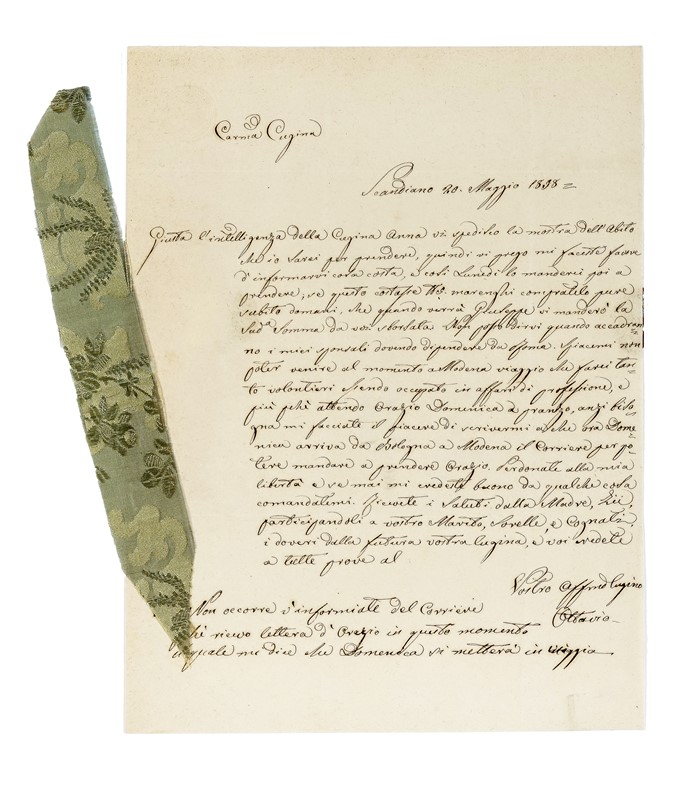 Carma Cugina
Scandiano 20. Maggio 1838 =
Giusta l'intelligenza della Cugina Anna vi spedisco la mostra dell'Abito
che io sarei per prendere, quindi vi prego mi faceste favore
d'informarvi cosa costa, e così Lunedì lo manderei poi a
prendere; se questo costasse marenghi compratelo pure
subito domani, che quando verrà Giuseppe vi manderò la
Sudª Somma da voi sborsata. Non posso dirvi quando accadran=
no i miei sponsali dovendo dipendere da Roma. Spiacemi non
poter venire al momento a Modena viaggio che farei tan=
to volontieri sendo occupato in affari di professione, e
più pchè attendo Orazio Domenica a pranzo, anzi biso=
gna mi facciate il piacere di scrivermi a che ora Dome=
nica arriva da Bologna a Modena il Corriere per po=
tere mandare a prendere Orazio. Perdonate alla mia
libertà e se mai mi credeste buono da qualche cosa
comandatemi. Ricevete i Saluti dalla Madre, Zii,
participandoli a vostro Marito, Sorelle, e Cognati,
i doveri della futura vostra Cugina, e voi credete
a tutte prove al
Vostro Affmo Cugino
Ottavio
Non occorre v'informiate del Corriere
chè ricevo lettera d'Orazio in questo momento
il quale mi dice che Domenica si metterà in viaggio